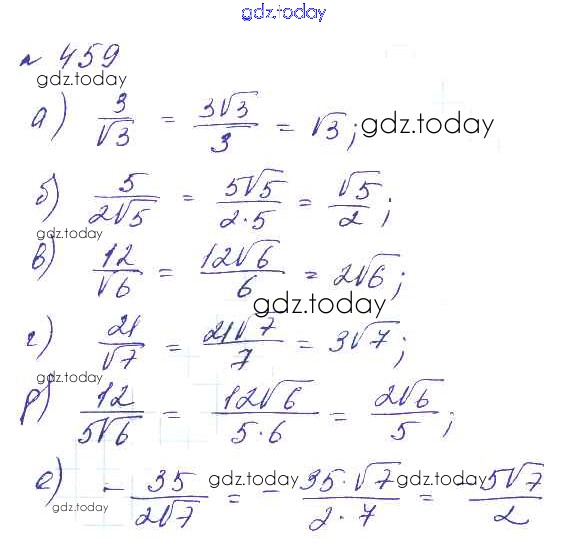 gdz.today
№ 459
gdz.today
а) 3/√3 = 3√3/3 = √3; gdz.today
б) 5/2√5 = 5√5/2·5 = √5/2;
gdz.today
в) 12/√6 = 12√6/6 = 2√6;
gdz.today
г) 21/√7 = 21√7/7 = 3√7;
gdz.today
д) 12/5√6 = 12√6/5·6 = 2√6/5;
е) - 35/2√7 = - 35·√7/2·7 = - 5√7/2
gdz.today gdz.today
gdz.today